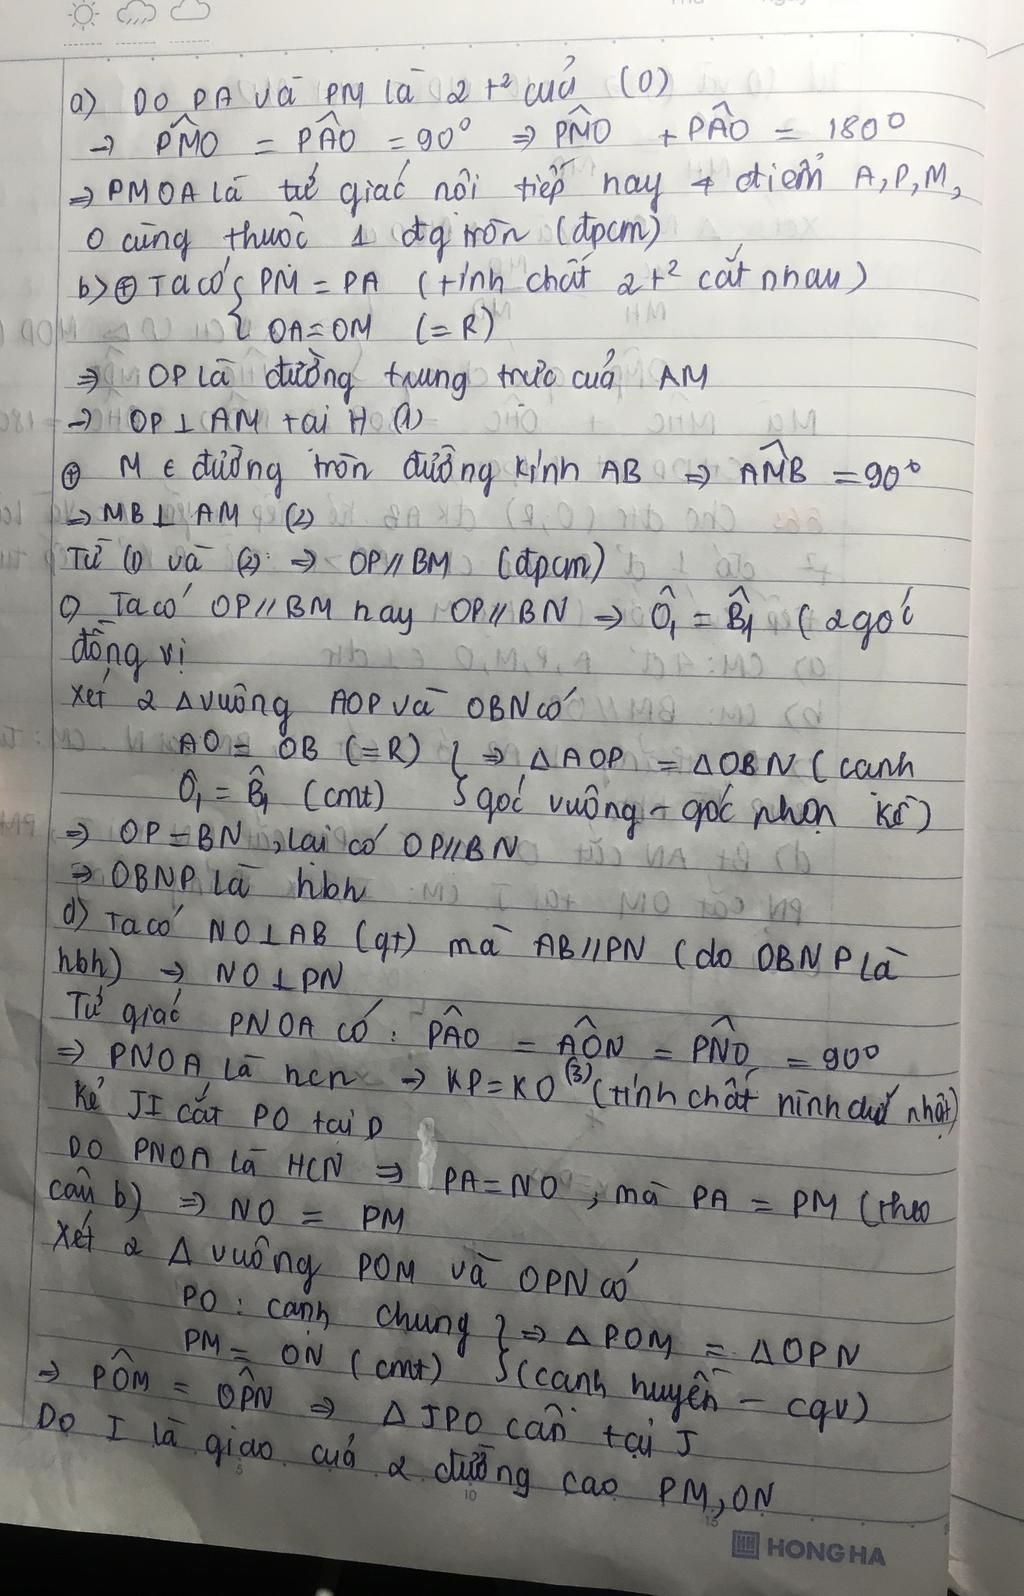 a) Do PA và PM là 2 t² của (O)
→ PM̂O = PÂO = 90° ⇒ PM̂O + PÂO = 180°
⇒ PMOA là tứ giác nội tiếp hay 4 điểm A, P, M,
O cùng thuộc 1 đg tròn (đpcm)
b) ⊕ Ta có { PM = PA (tính chất 2 t² cắt nhau)
{ OA = OM (= R)
⇒ OP là đường trung trực của AM
→ OP ⊥ AM tại H (1)
⊕ M ∈ đường tròn đường kính AB ⇒ AM̂B = 90°
⇒ MB ⊥ AM (2)
Từ (1) và (2) ⇒ OP // BM (đpcm)
c) Ta có OP // BM hay OP // BN ⇒ Ô₁ = B̂₁ (2 góc
đồng vị
Xét 2 Δ vuông AOP và OBN có
AO = OB (= R) } ⇒ ΔAOP = ΔOBN (cạnh
Ô₁ = B̂₁ (cmt) } góc vuông - góc nhọn kề)
⇒ OP = BN, lại có OP // BN
⇒ OBNP là hbh
d) Ta có NO ⊥ AB (gt) mà AB // PN (do OBNP là
hbh) → NO ⊥ PN
Tứ giác PNOA có: PÂO = AÔN = PN̂O = 90°
⇒ PNOA là hcn → KP = KO (3) (tính chất hình chữ nhật)
Kẻ JI cắt PO tại D
Do PNOA là HCN ⇒ PA = NO, mà PA = PM (theo
câu b) ⇒ NO = PM
Xét 2 Δ vuông POM và OPN có
PO : cạnh chung } ⇒ ΔPOM = ΔOPN
PM = ON (cmt) } (cạnh huyền - cgv)
⇒ PÔM = OP̂N ⇒ ΔJPO cân tại J
Do I là giao của 2 đường cao PM, ON
HONG HA